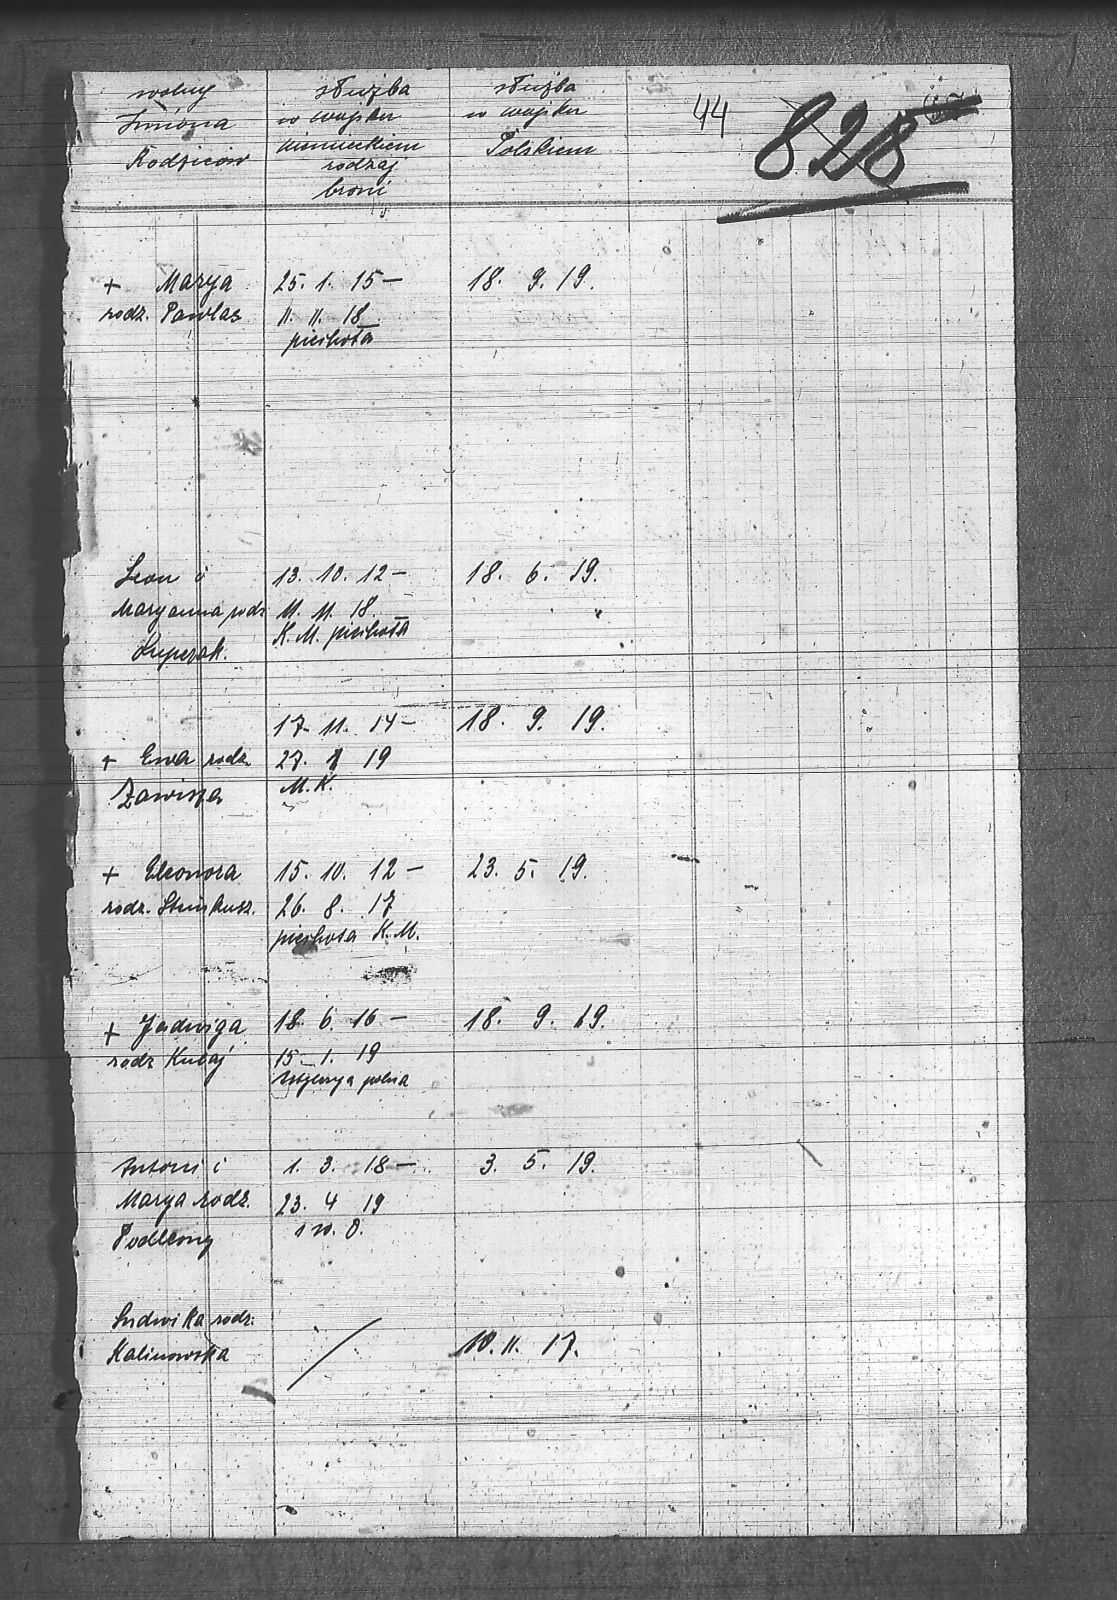 wolny
Imiona
Rodziców
służba
w wojsku
niemieckiem
rodzaj
broni
służba
w wojsku
Polskiem
44
828
+ Marya
rodz. Pawlas
25. 1. 15 –
11. 11. 18
piechota
18. 9. 19.
Leon i
Maryanna rodz
13. 10. 12 –
11. 11. 18.
K.M. piechota
18. 6. 19.
+ Ewa rodz.
Zawisza
17. 11. 14 –
27. 1 19
M.K.
18. 9. 19.
+ Eleonora
rodz.
15. 10. 12 –
26. 8. 17
piechota K.M.
23. 5. 19.
+ Jadwiga
rodz Kubaj
18. 6. 16 –
15. 1. 19
polna
18. 9. 19.
Antoni i
Marya rodz.
1. 3. 18 –
23. 4 19
3. 5. 19.
Ludwika rodz.
Kalinowska
10. 11. 17.